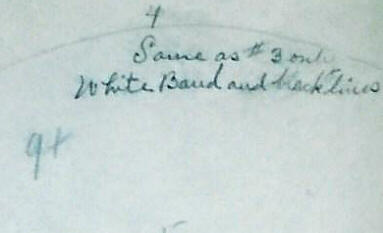 4
Same as #3 only
White Band and black lines
9+